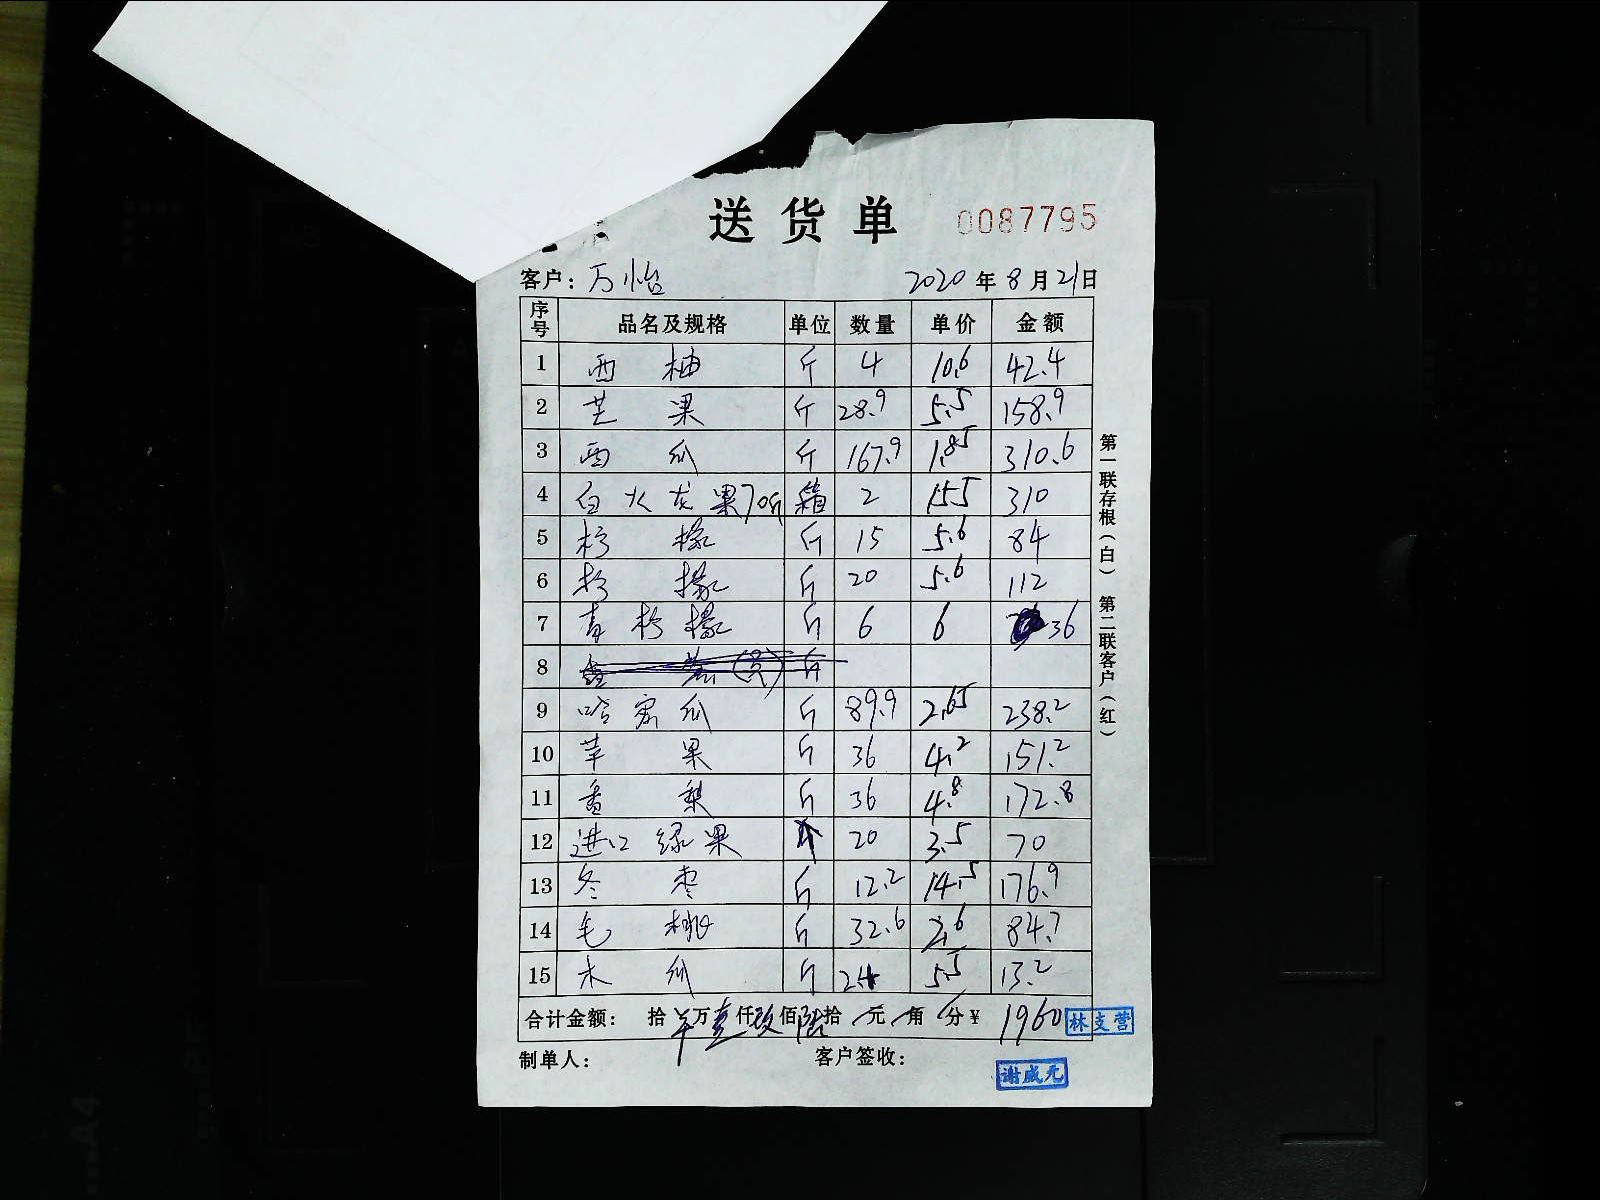 送货单 0087795
客户: 万怡 2020年8月21日
序号 品名及规格 单位 数量 单价 金额
1 西柚 斤 4 10.6 42.4
2 芒果 斤 28.9 5.5 158.9
3 西瓜 斤 167.9 1.85 310.6
4 白火龙果70斤 箱 2 155 310
5 柠檬 斤 15 5.6 84
6 柠檬 斤 20 5.6 112
7 青柠檬 斤 6 6 36
8 斤
9 哈密瓜 斤 89.9 2.65 238.2
10 苹果 斤 36 4.2 151.2
11 香梨 斤 36 4.8 172.8
12 进口绿果 20 3.5 70
13 冬枣 斤 12.2 14.5 176.9
14 毛桃 斤 32.6 2.6 84.7
15 木瓜 斤 2.4 5.5 13.2
合计金额: 拾 万壹仟玖佰陆拾 元 角 分 ¥ 1960 林支营
制单人: 客户签收:
谢威元
第一联存根(白) 第二联客户(红)